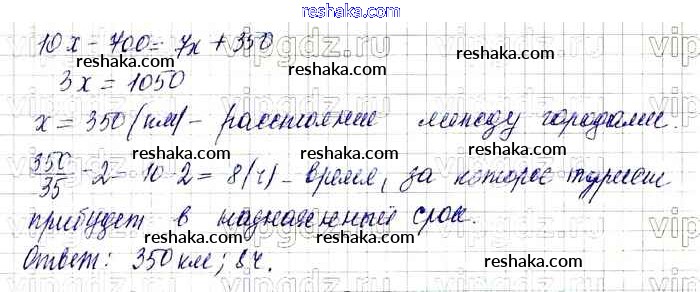 reshaka.com
10x - 700 = 7x + 350
reshaka.com
3x = 1050
reshaka.com reshaka.com
x = 350 (км) - расстояние между городами.
reshaka.com
350/35 - 2 = 10 - 2 = 8 (ч) - время, за которое турист
reshaka.com
прибудет в назначенный срок.
reshaka.com reshaka.com
Ответ: 350 км; 8 ч.
reshaka.com